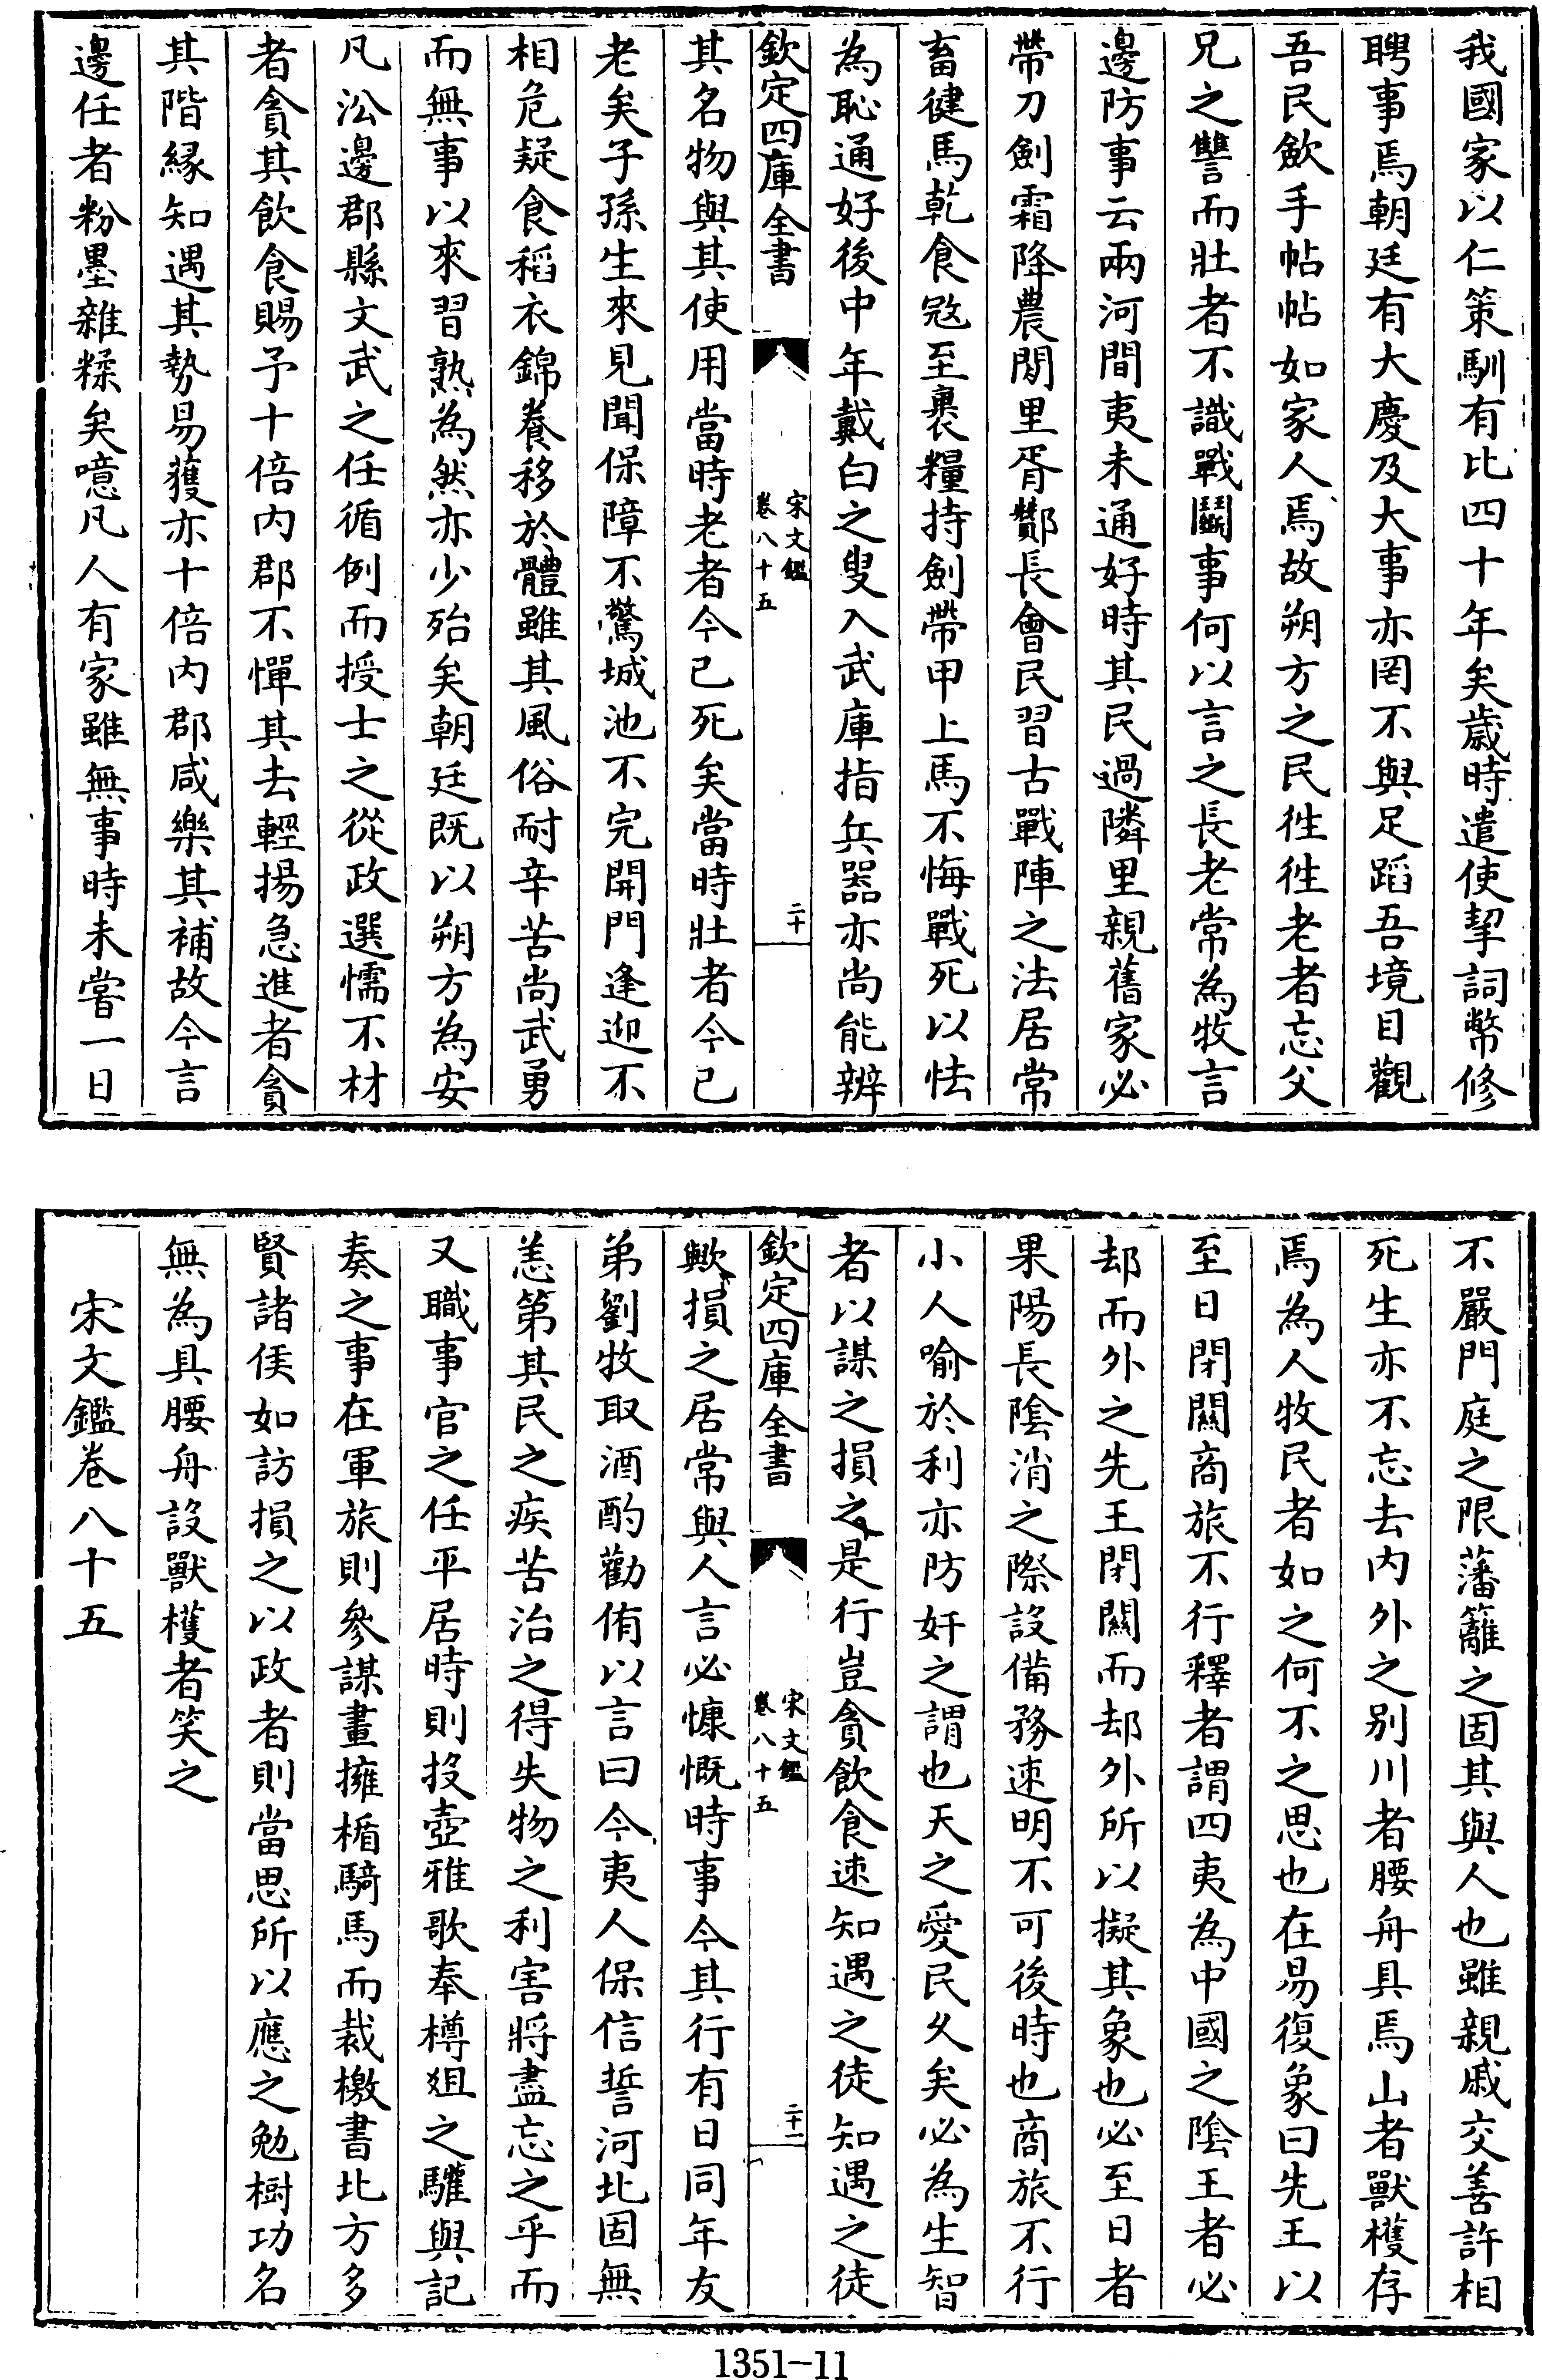 我國家以仁策馴有比四十年矣歲時遣使挈詞幣修
聘事焉朝廷有大慶及大事亦罔不與足蹈吾境目觀
吾民歛手帖帖如家人焉故朔方之民徃徃老者忘父
兄之讐而壯者不識戰鬭事何以言之長老常為牧言
邊防事云兩河間夷未通好時其民過隣里親舊家必
帶刀劍霜降農閒里胥酇長會民習古戰陣之法居常
畜健馬乾食㓂至裹糧持劍帶甲上馬不悔戰死以怯
為恥通好後中年戴白之叟入武庫指兵器亦尚能辨
欽定四庫全書
宋文鑑
卷八十五
二十
其名物與其使用當時老者今已死矣當時壯者今已
老矣子孫生來見聞保障不驚城池不完開門逢迎不
相危疑食稻衣錦養移於體雖其風俗耐辛苦尚武勇
而無事以來習熟為然亦少殆矣朝廷既以朔方為安
凡㳂邊郡縣文武之任循例而授士之從政選懦不材
者貪其飲食賜予十倍内郡不憚其去輕揚急進者貪
其階縁知遇其勢易獲亦十倍内郡咸樂其補故今言
邊任者粉墨雜糅矣噫凡人有家雖無事時未嘗一日
不嚴門庭之限藩籬之固其與人也雖親戚交善許相
死生亦不忘去内外之别川者腰舟具焉山者獸檴存
焉為人牧民者如之何不之思也在易復象曰先王以
至日閉關商旅不行釋者謂四夷為中國之陰王者必
却而外之先王閉關而却外所以擬其象也必至日者
果陽長陰消之際設備務速明不可後時也商旅不行
小人喻於利亦防奸之謂也天之愛民久矣必為生智
者以謀之損之是行豈貪飲食速知遇之徒知遇之徒
欽定四庫全書
宋文鑑
卷八十五
二十一
歟損之居常與人言必慷慨時事今其行有日同年友
弟劉牧取酒酌勸侑以言曰今夷人保信誓河北固無
恙第其民之疾苦治之得失物之利害將盡忘之乎而
又職事官之任平居時則投壺雅歌奉樽俎之驩與記
奏之事在軍旅則參謀畫擁楯騎馬而裁檄書北方多
賢諸侯如訪損之以政者則當思所以應之勉樹功名
無為具腰舟設獸檴者笑之
宋文鑑卷八十五
1351-11